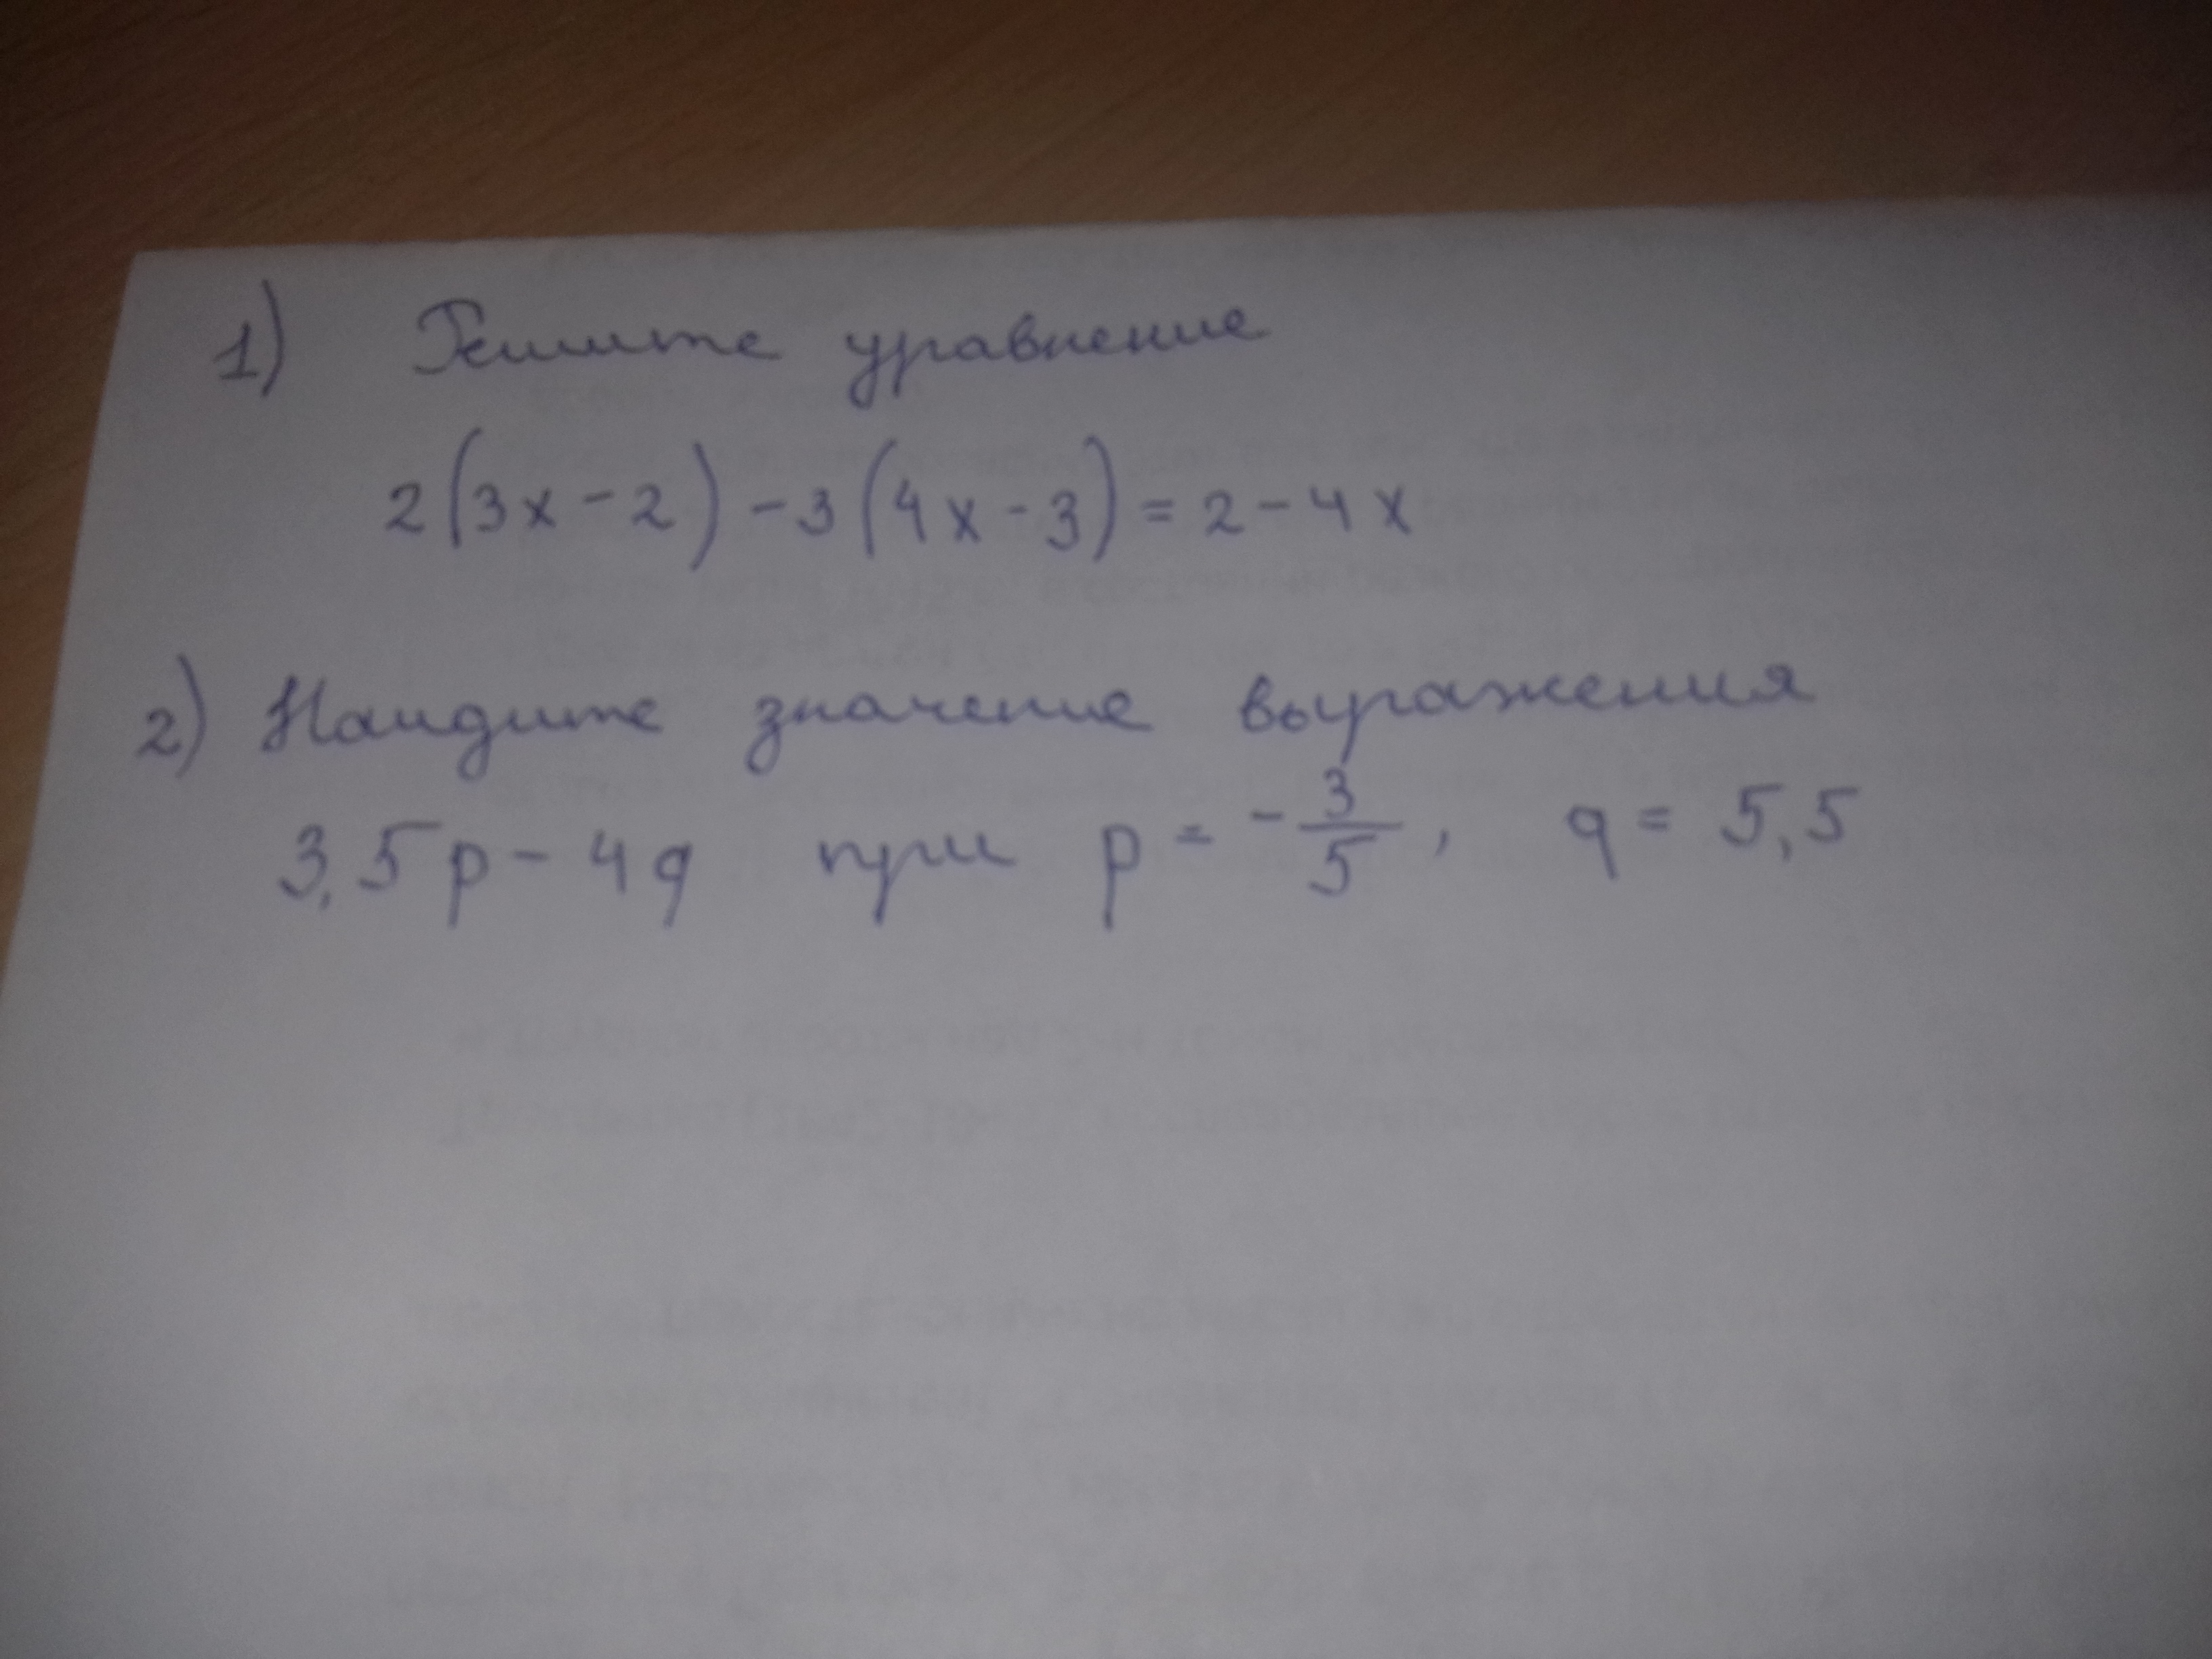 1) Решите уравнение
2(3x-2)-3(4x-3)=2-4x
2) Найдите значение выражения
3,5p-4q при p=-3/5, q=5,5